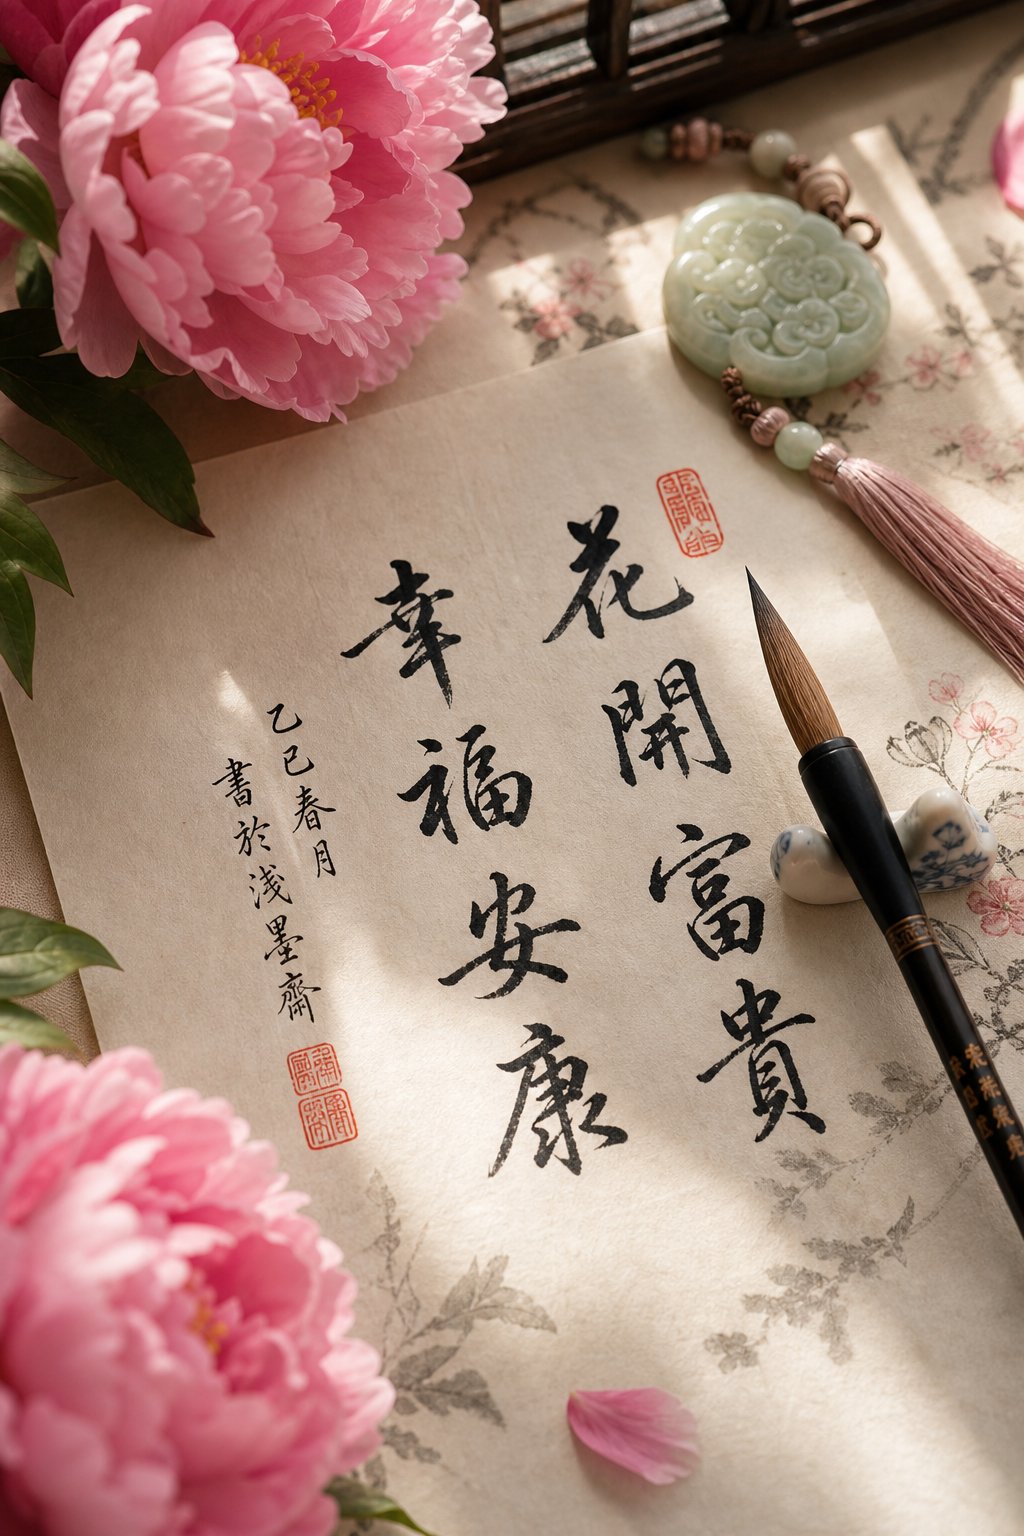 花開富貴
幸福安康
乙巳春月
書於浅墨齋